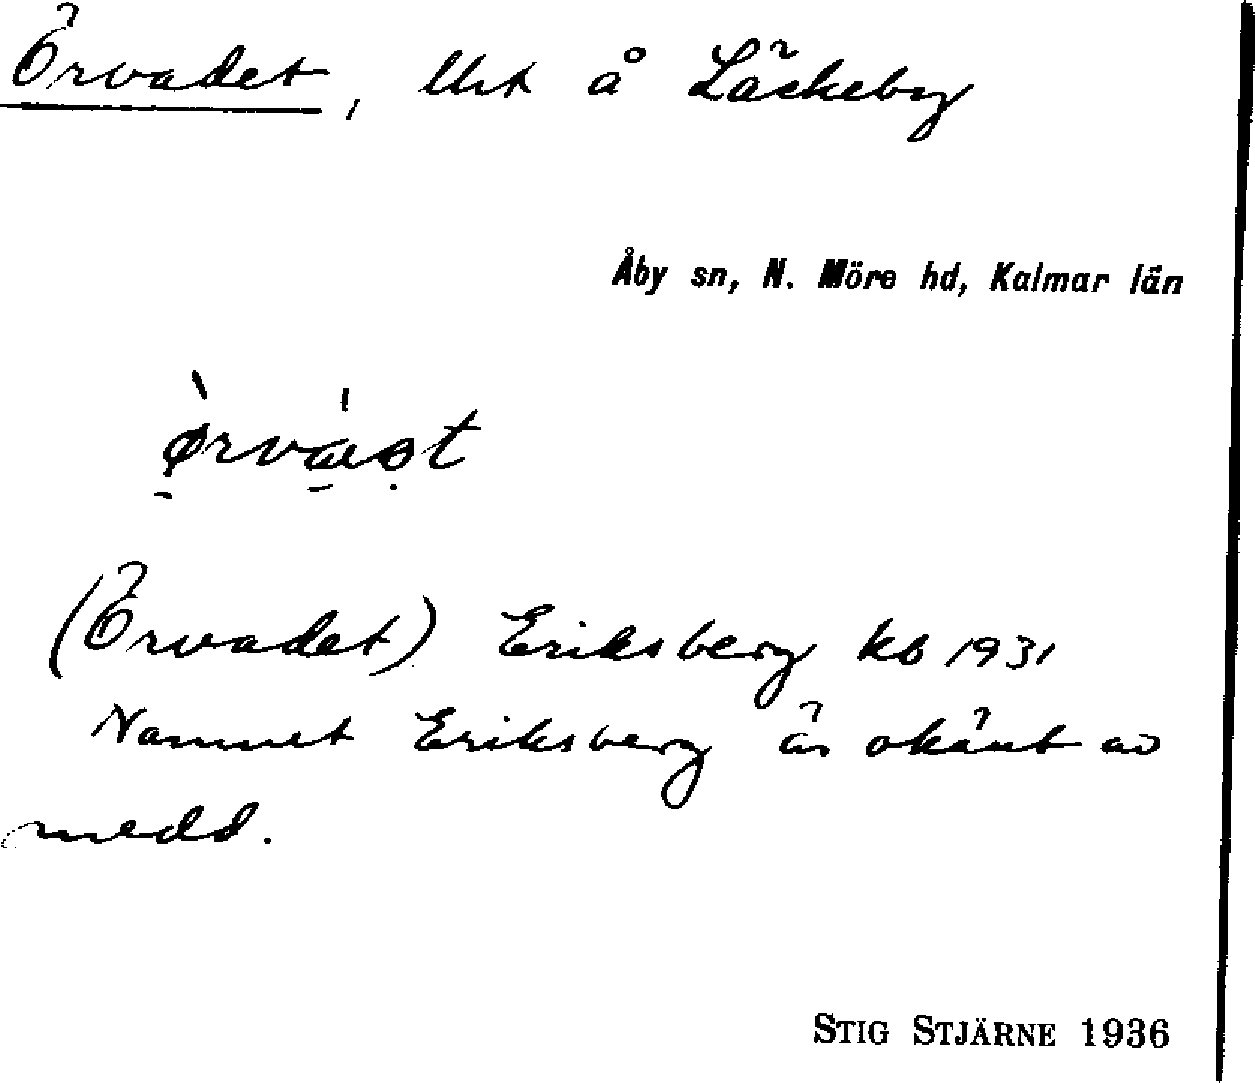 Örvadet, lht å Läckeby
Åby sn, N. Möre hd, Kalmar län
(Örvadet) Eriksberg kb 1931
Namnet Eriksberg är okänt av
medd.
STIG STJÄRNE 1936